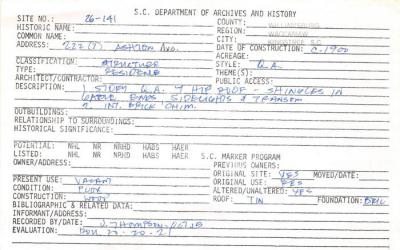 S.C. DEPARTMENT OF ARCHIVES AND HISTORY
SITE NO.: 26-141
COUNTY: WILLIAMSBURG
HISTORIC NAME:
REGION: WACCAMAW
COMMON NAME:
CITY
ADDRESS: 222(?) ASHTON Ave.
DATE OF CONSTRUCTION: C-1900
ACREAGE:
CLASSIFICATION: STRUCTURE
STYLE: Q.A.
TYPE: RESIDENCE
THEME(S):
ARCHITECT/CONTRACTOR:
PUBLIC ACCESS:
DESCRIPTION: 1 STORY Q.A. HIP ROOF - SHINGLES IN
GABLE ENDS SIDELIGHTS & TRANSOM
2 INT. BRICK CHIM.
OUTBUILDINGS:
RELATIONSHIP TO SURROUNDINGS:
HISTORICAL SIGNIFICANCE:
POTENTIAL: NHL NR NRHD HABS HAER
LISTED: NHL NR NRHD HABS HAER S.C. MARKER PROGRAM
OWNER/ADDRESS:
PREVIOUS OWNERS:
ORIGINAL SITE: YES MOVED/DATE:
PRESENT USE: VACANT
ORIGINAL USE: RES
CONDITION: POOR
ALTERED/UNALTERED: YES
CONSTRUCTION: WOOD
ROOF: TIN FOUNDATION:
BIBLIOGRAPHIC & RELATED DATA:
INFORMANT/ADDRESS:
RECORDED BY/DATE: J. THOMPSON
EVALUATION: